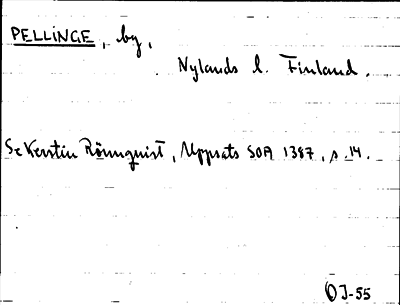 PELLINGE, by,
Nylands l. Finland.
Se Kerstin Rönnquist, Uppsats SOA 1387, s. 14.
OJ-55